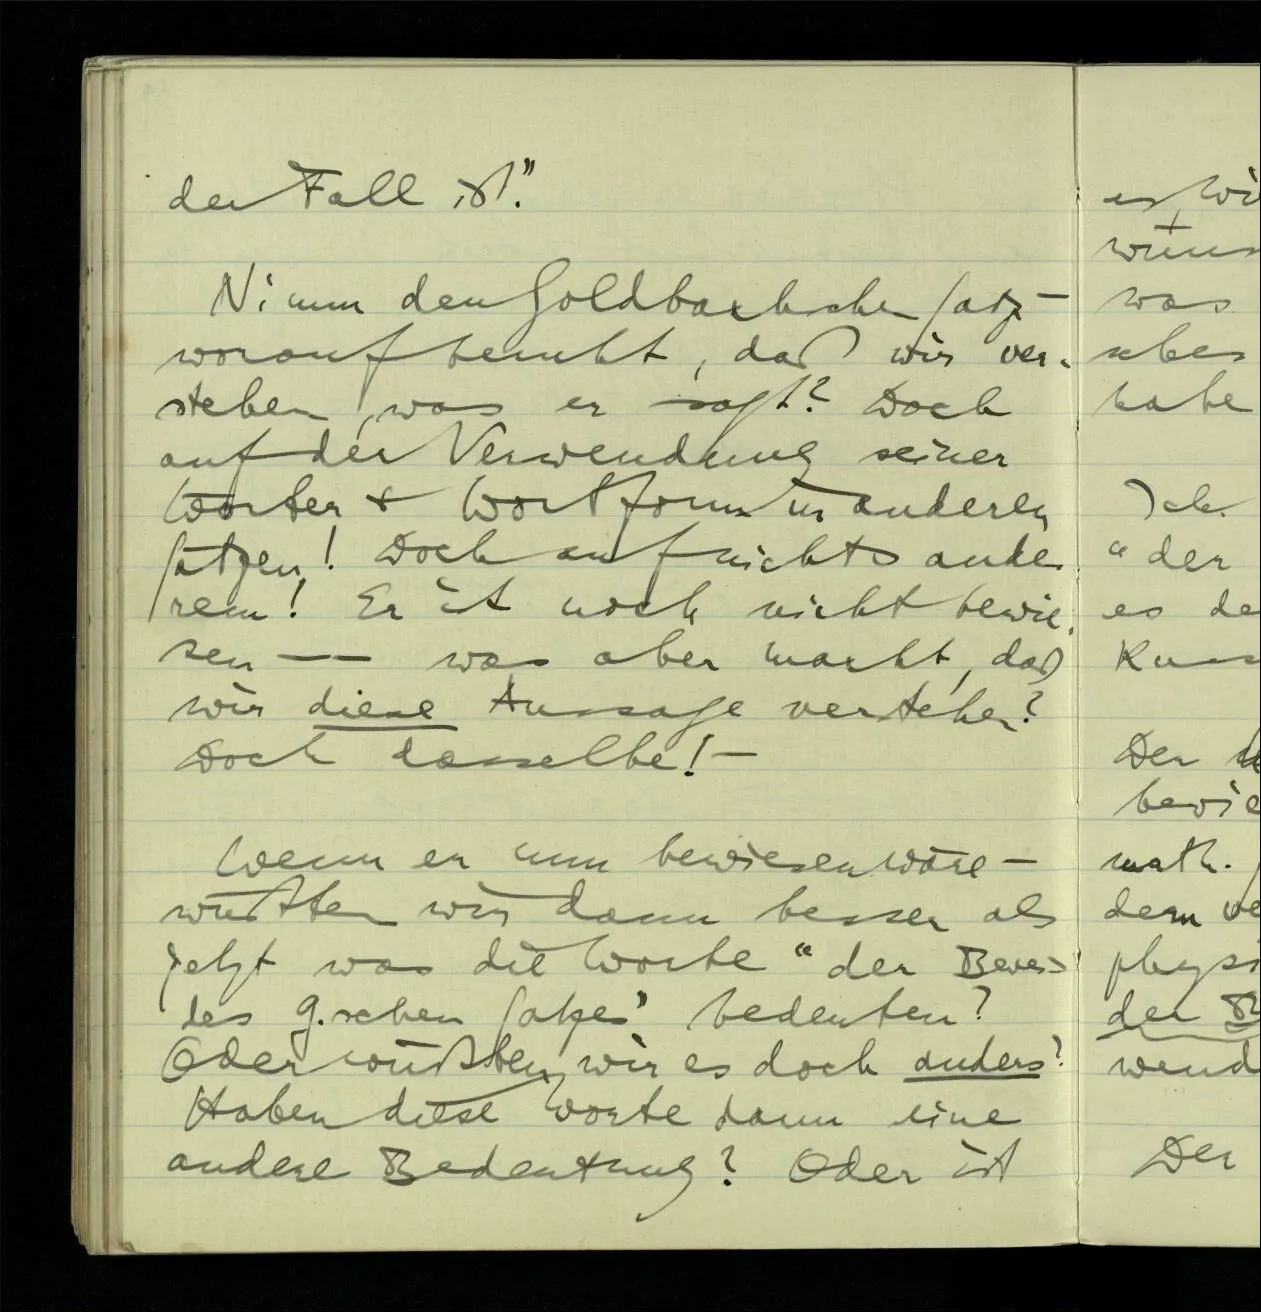 der Fall ist."
Nimm den Goldbachschen Satz —
worauf beruht, daß wir ver-
stehen, was er sagt? Doch
auf der Verwendung seiner
Wörter & Wortformen in anderen
Sätzen! Doch auf nichts ande-
rem! Er ist noch nicht bewie-
sen — was aber macht, daß
wir diese Aussage verstehen?
Doch dasselbe! —
Wenn er nun bewiesen wäre —
wüßten wir dann besser als
jetzt was die Worte "der Beweis
des G.schen Satzes" bedeuten?
Oder wüßten wir es doch anders?
Haben diese Worte dann eine
andere Bedeutung? Oder ist
es
was
habe
Ich
"der
es
Der
math.
dem
der
Der